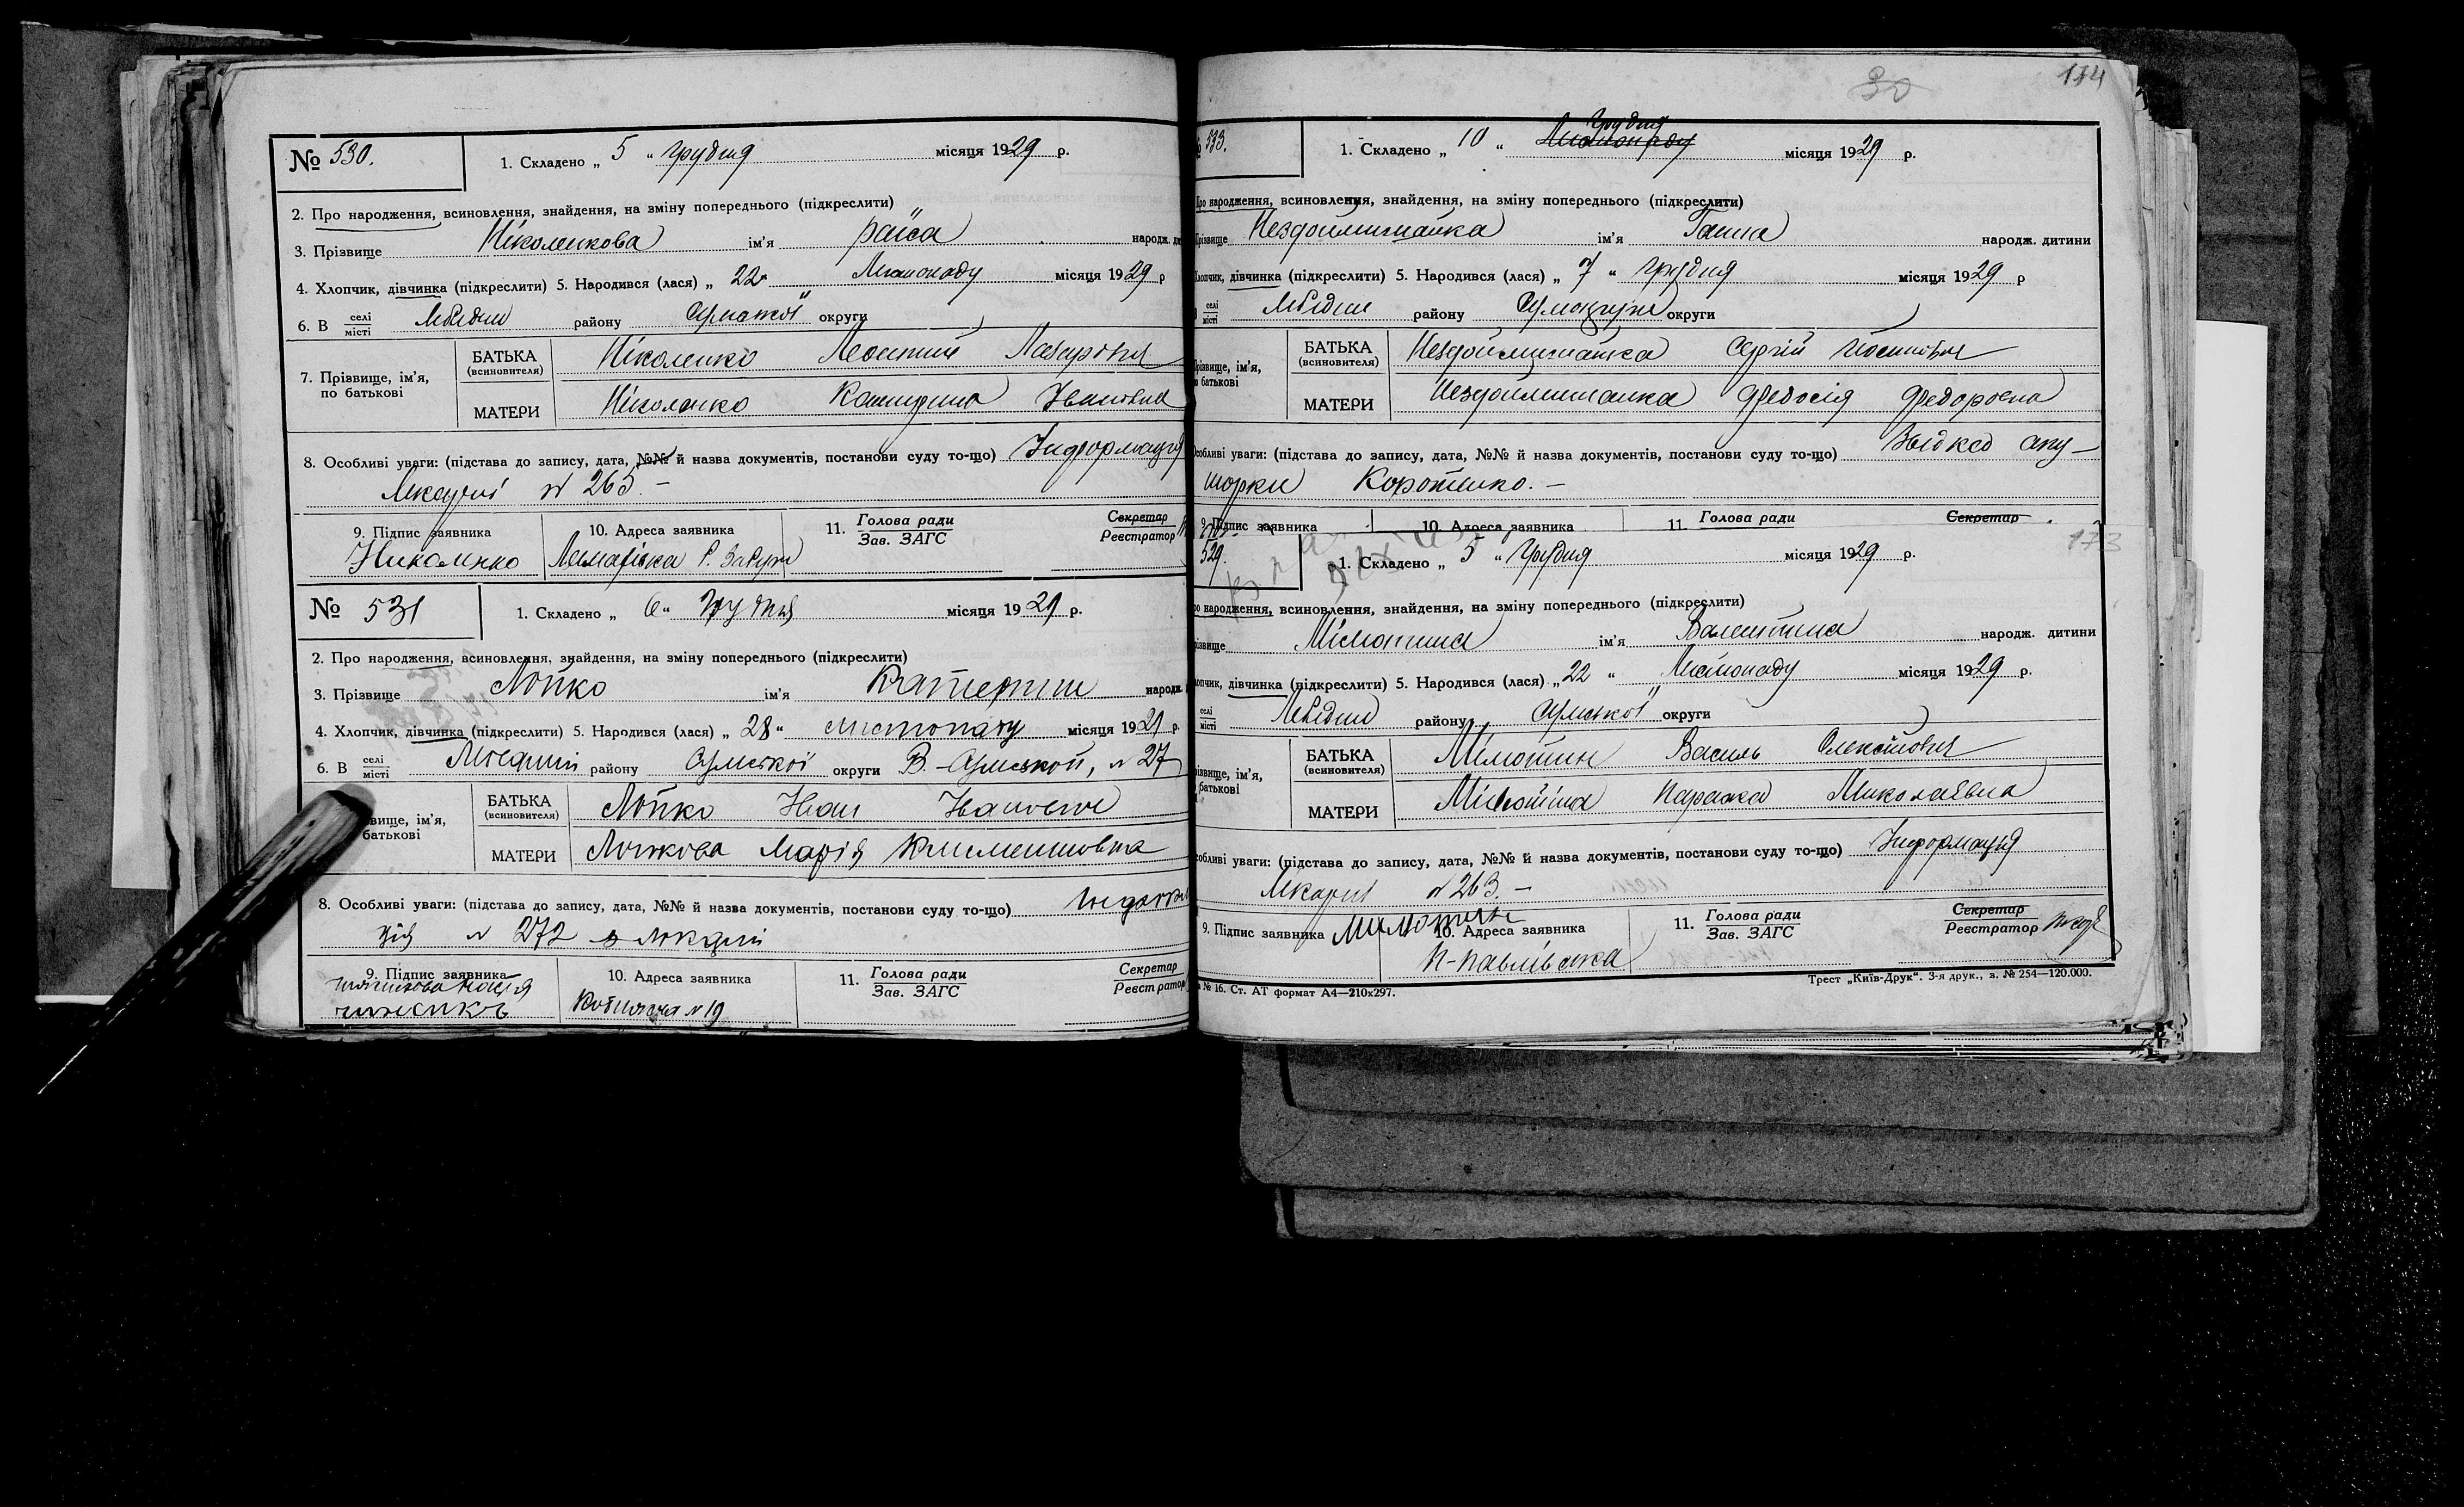 № 530.
1. Складено „ 5 “ грудня місяця 1929 р.
2. Про народження, всиновлення, знайдення, на зміну попереднього (підкреслити)
3. Прізвище Ніколенкова ім’я раїса народж.
4. Хлопчик, дівчинка (підкреслити) 5. Народився (лася) „ 22 “ Листопаду місяця 1929 р
6. В селі/місті Лебедин району Сумської округи
7. Прізвище, ім’я, по батькові
БАТЬКА (всиновителя) Ніколенко Леонтий Назарович
МАТЕРИ Ніколенко Катерина Івановна
8. Особливі уваги: (підстава до запису, дата, №№ й назва документів, постанови суду то-що) Інформація
Лікарні № 265. –
9. Підпис заявника 10. Адреса заявника 11. Голова ради / Зав. ЗАГС Секретар / Реєстратор
Николенко
№ 531
1. Складено „ 6 “ грудня місяця 1929 р.
2. Про народження, всиновлення, знайдення, на зміну попереднього (підкреслити)
3. Прізвище Лопко ім’я Катерина народж.
4. Хлопчик, дівчинка (підкреслити) 5. Народився (лася) „ 28 “ листопаду місяця 1929 р.
6. В селі/місті Лебедині району Сумської округи В.-Сумской, № 27
вище, ім’я, батькові
БАТЬКА (всиновителя) Лопко Иван Иванович
МАТЕРИ Марія Климентовна
8. Особливі уваги: (підстава до запису, дата, №№ й назва документів, постанови суду то-що)
ція № 272 з лікарні
9. Підпис заявника 10. Адреса заявника 11. Голова ради / Зав. ЗАГС Секретар / Реєстратор
№ 19
30 174
№ 533.
1. Складено „ 10 “ Листопаду грудня місяця 1929 р.
Про народження, всиновлення, знайдення, на зміну попереднього (підкреслити)
Прізвище Нездойминашка ім’я Ганна народж. дитини
Хлопчик, дівчинка (підкреслити) 5. Народився (лася) „ 7 “ грудня місяця 1929 р
селі/місті Лебедин району округи
Прізвище, ім’я, по батькові
БАТЬКА (всиновителя) Нездойминашка Сергій Йосипович
МАТЕРИ Нездойминашка Федосія Федоровна
Особливі уваги: (підстава до запису, дата, №№ й назва документів, постанови суду то-що) аку-
шорки Коротенко. –
9. Підпис заявника 10. Адреса заявника 11. Голова ради Секретар
173
529.
1. Складено „ 5 “ грудня місяця 1929 р.
Про народження, всиновлення, знайдення, на зміну попереднього (підкреслити)
Прізвище Мілютина ім’я Валентина народж. дитини
Хлопчик, дівчинка (підкреслити) 5. Народився (лася) „ 22 “ Листопаду місяця 1929 р.
селі/місті Лебедин району Сумської округи
Прізвище, ім’я, батькові
БАТЬКА (всиновителя) Мілютин Василь Олексійович
МАТЕРИ Мілютіна Параска Миколаївна
Особливі уваги: (підстава до запису, дата, №№ й назва документів, постанови суду то-що) Інформація
Лікарні № 263 –
9. Підпис заявника Милютин 10. Адреса заявника 11. Голова ради / Зав. ЗАГС Секретар / Реєстратор
Н-Павлівська
№ 16. Ст. АТ формат А4—210х297. Трест „Київ-Друк“. 3-я друк., з. № 254—120.000.